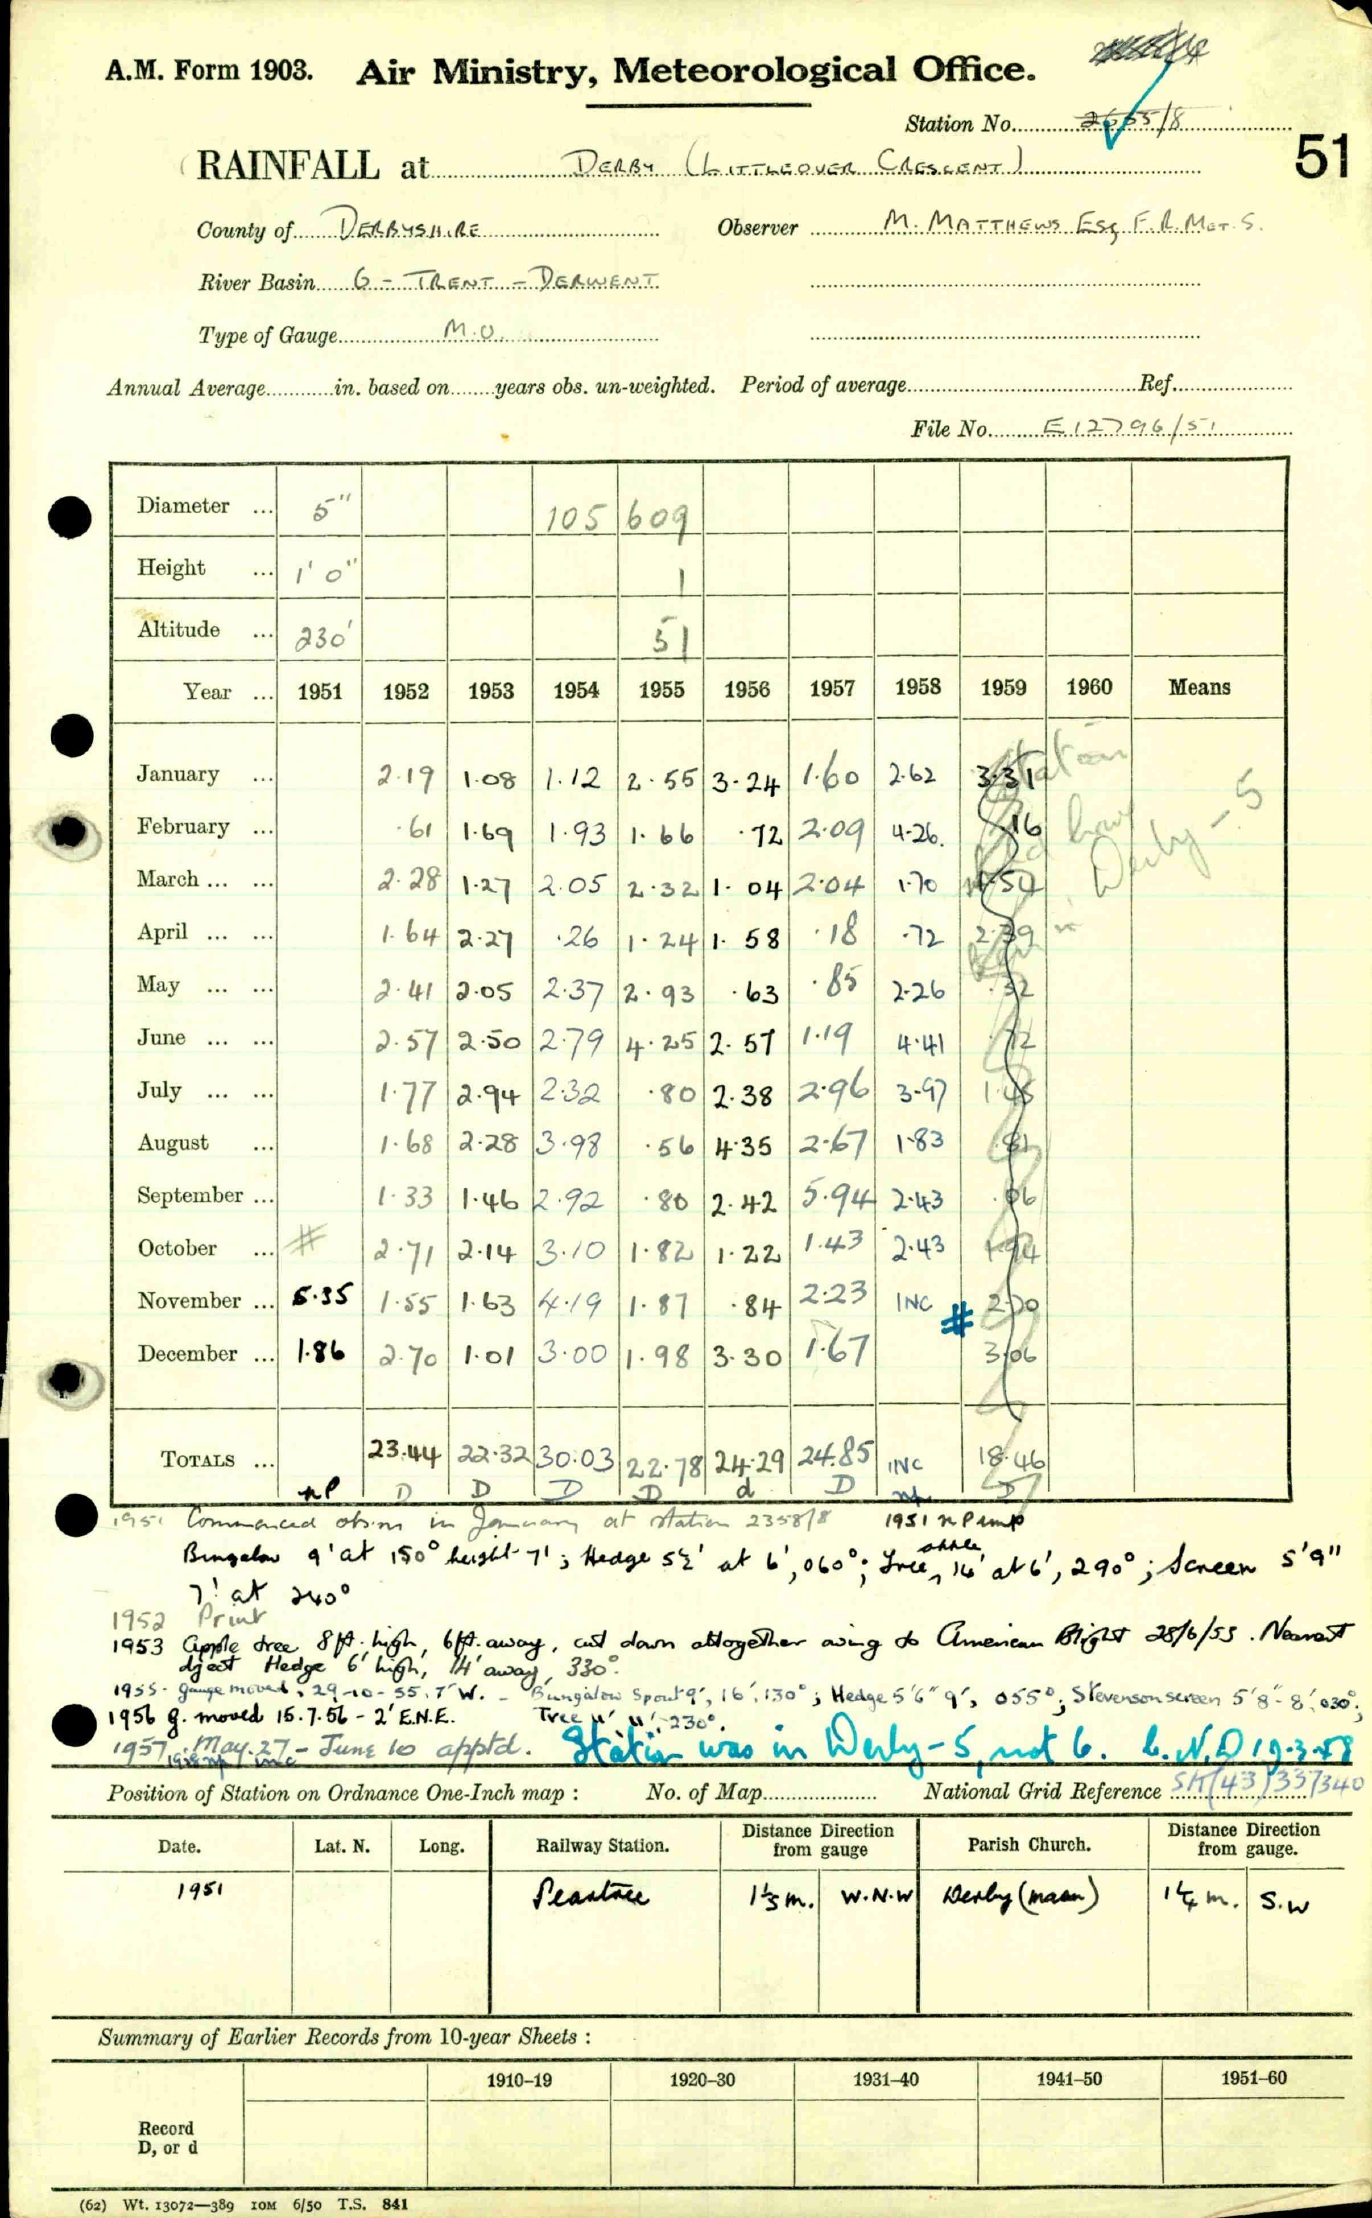 A.M. Form 1903. Air Ministry, Meteorological Office.
Station No. 2655/8
51
RAINFALL at DERBY (LITTLEOVER CRESCENT)
County of DERBYSHIRE Observer M. MATTHEWS Esq F.R.Met.S.
River Basin 6 - TRENT - DERWENT
Type of Gauge M.O.
Annual Average in. based on years obs. un-weighted. Period of average Ref.
File No. E12796/51
Diameter ... 5" 105 609
Height ... 1' 0" 1
Altitude ... 230' 51
Year ... 1951 1952 1953 1954 1955 1956 1957 1958 1959 1960 Means
January ... 2.19 1.08 1.12 2.55 3.24 1.60 2.62 3.31
February ... .61 1.69 1.93 1.66 .72 2.09 4.26. .16
March ... ... 2.28 1.27 2.05 2.32 1.04 2.04 1.70 1.54
April ... ... 1.64 2.27 .26 1.24 1.58 .18 .72 2.39
May ... ... 2.41 2.05 2.37 2.93 .63 .85 2.26 .32
June ... ... 2.57 2.50 2.79 4.25 2.57 1.19 4.41 .72
July ... ... 1.77 2.94 2.32 .80 2.38 2.96 3.97 1.45
August ... 1.68 2.28 3.98 .56 4.35 2.67 1.83 .81
September ... 1.33 1.46 2.92 .80 2.42 5.94 2.43 .06
October ... # 2.71 2.14 3.10 1.82 1.22 1.43 2.43 1.94
November ... 5.35 1.55 1.63 4.19 1.87 .84 2.23 INC # 2.70
December ... 1.86 2.70 1.01 3.00 1.98 3.30 1.67 3.06
Station
how
in Derby - 5
TOTALS ... 23.44 22.32 30.03 22.78 24.29 24.85 INC 18.46
nP D D D D d D np D
1951 Commenced obsns in January at station 2358/8 1951 n P
Bungalow 9' at 150° height 7'; Hedge 5½' at 6', 060°; Tree, apple 14' at 6', 290°; Screen 5'9"
7' at 240°
1952 Print
1953 Apple tree 8ft. high, 6ft. away, cut down altogether owing to American Blight 28/6/53. Nearest
object Hedge 6' high, 14' away, 330°.
1955 - gauge moved, 29-10-55, 7' W. - Bungalow spout 9', 16', 130°; Hedge 5'6" 9', 055°; Stevenson screen 5'8" - 8', 030°;
1956 g. moved 15.7.56 - 2' E.N.E. Tree 11' 11', 230°.
1957. May. 27 - June 10 apptd. Station was in Derby - 5, not 6. 
1958 np inc
Position of Station on Ordnance One-Inch map : No. of Map National Grid Reference SK(43)337340
Date. Lat. N. Long. Railway Station. Distance Direction from gauge Parish Church. Distance Direction from gauge.
1951 Peartree 1⅓ m. W.N.W Derby (main) 1¼ m. S.W
Summary of Earlier Records from 10-year Sheets :
1910–19 1920–30 1931–40 1941–50 1951–60
Record
D, or d
(62) Wt. 13072—389 10M 6/50 T.S. 841